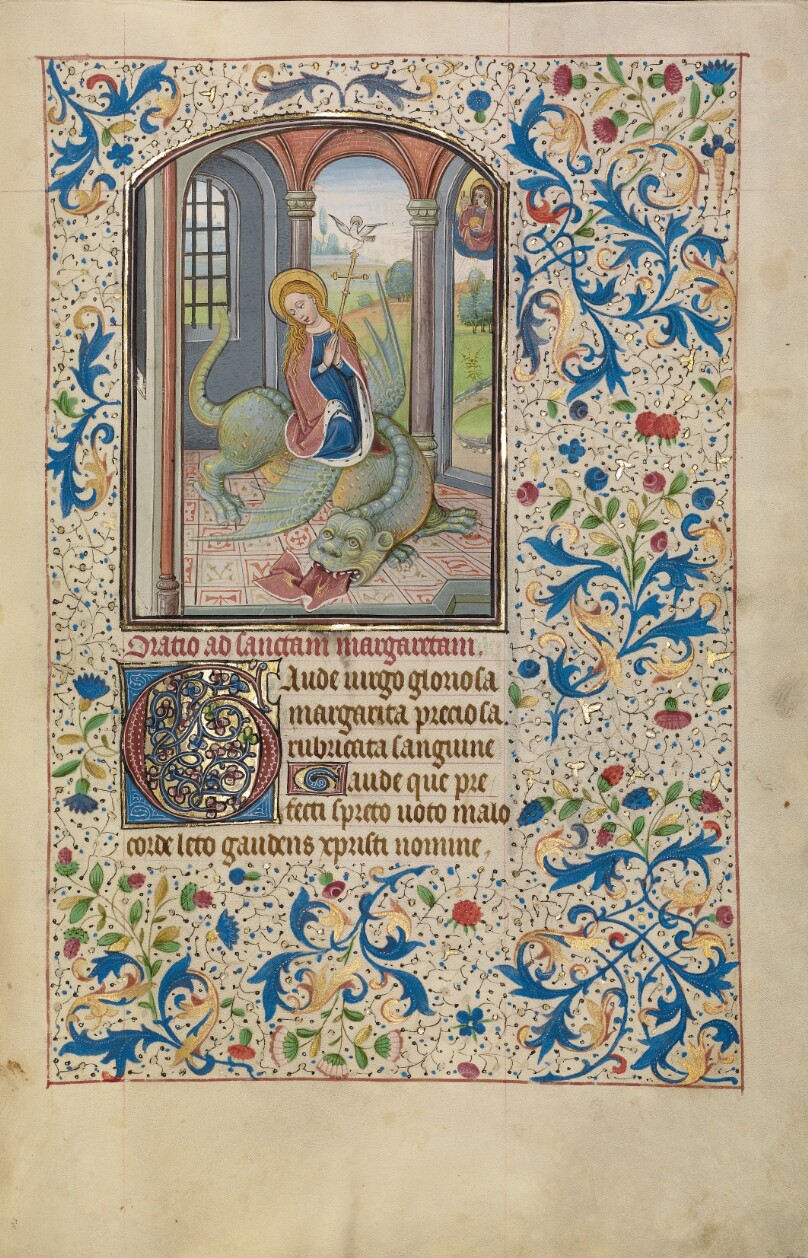 Oratio ad sanctam margaretam.
Gaude uirgo gloriosa
margarita preciosa
rubricata sanguine
Gaude que pre
fecti spreto uoto malo
corde leto gaudens xpristi nomine.